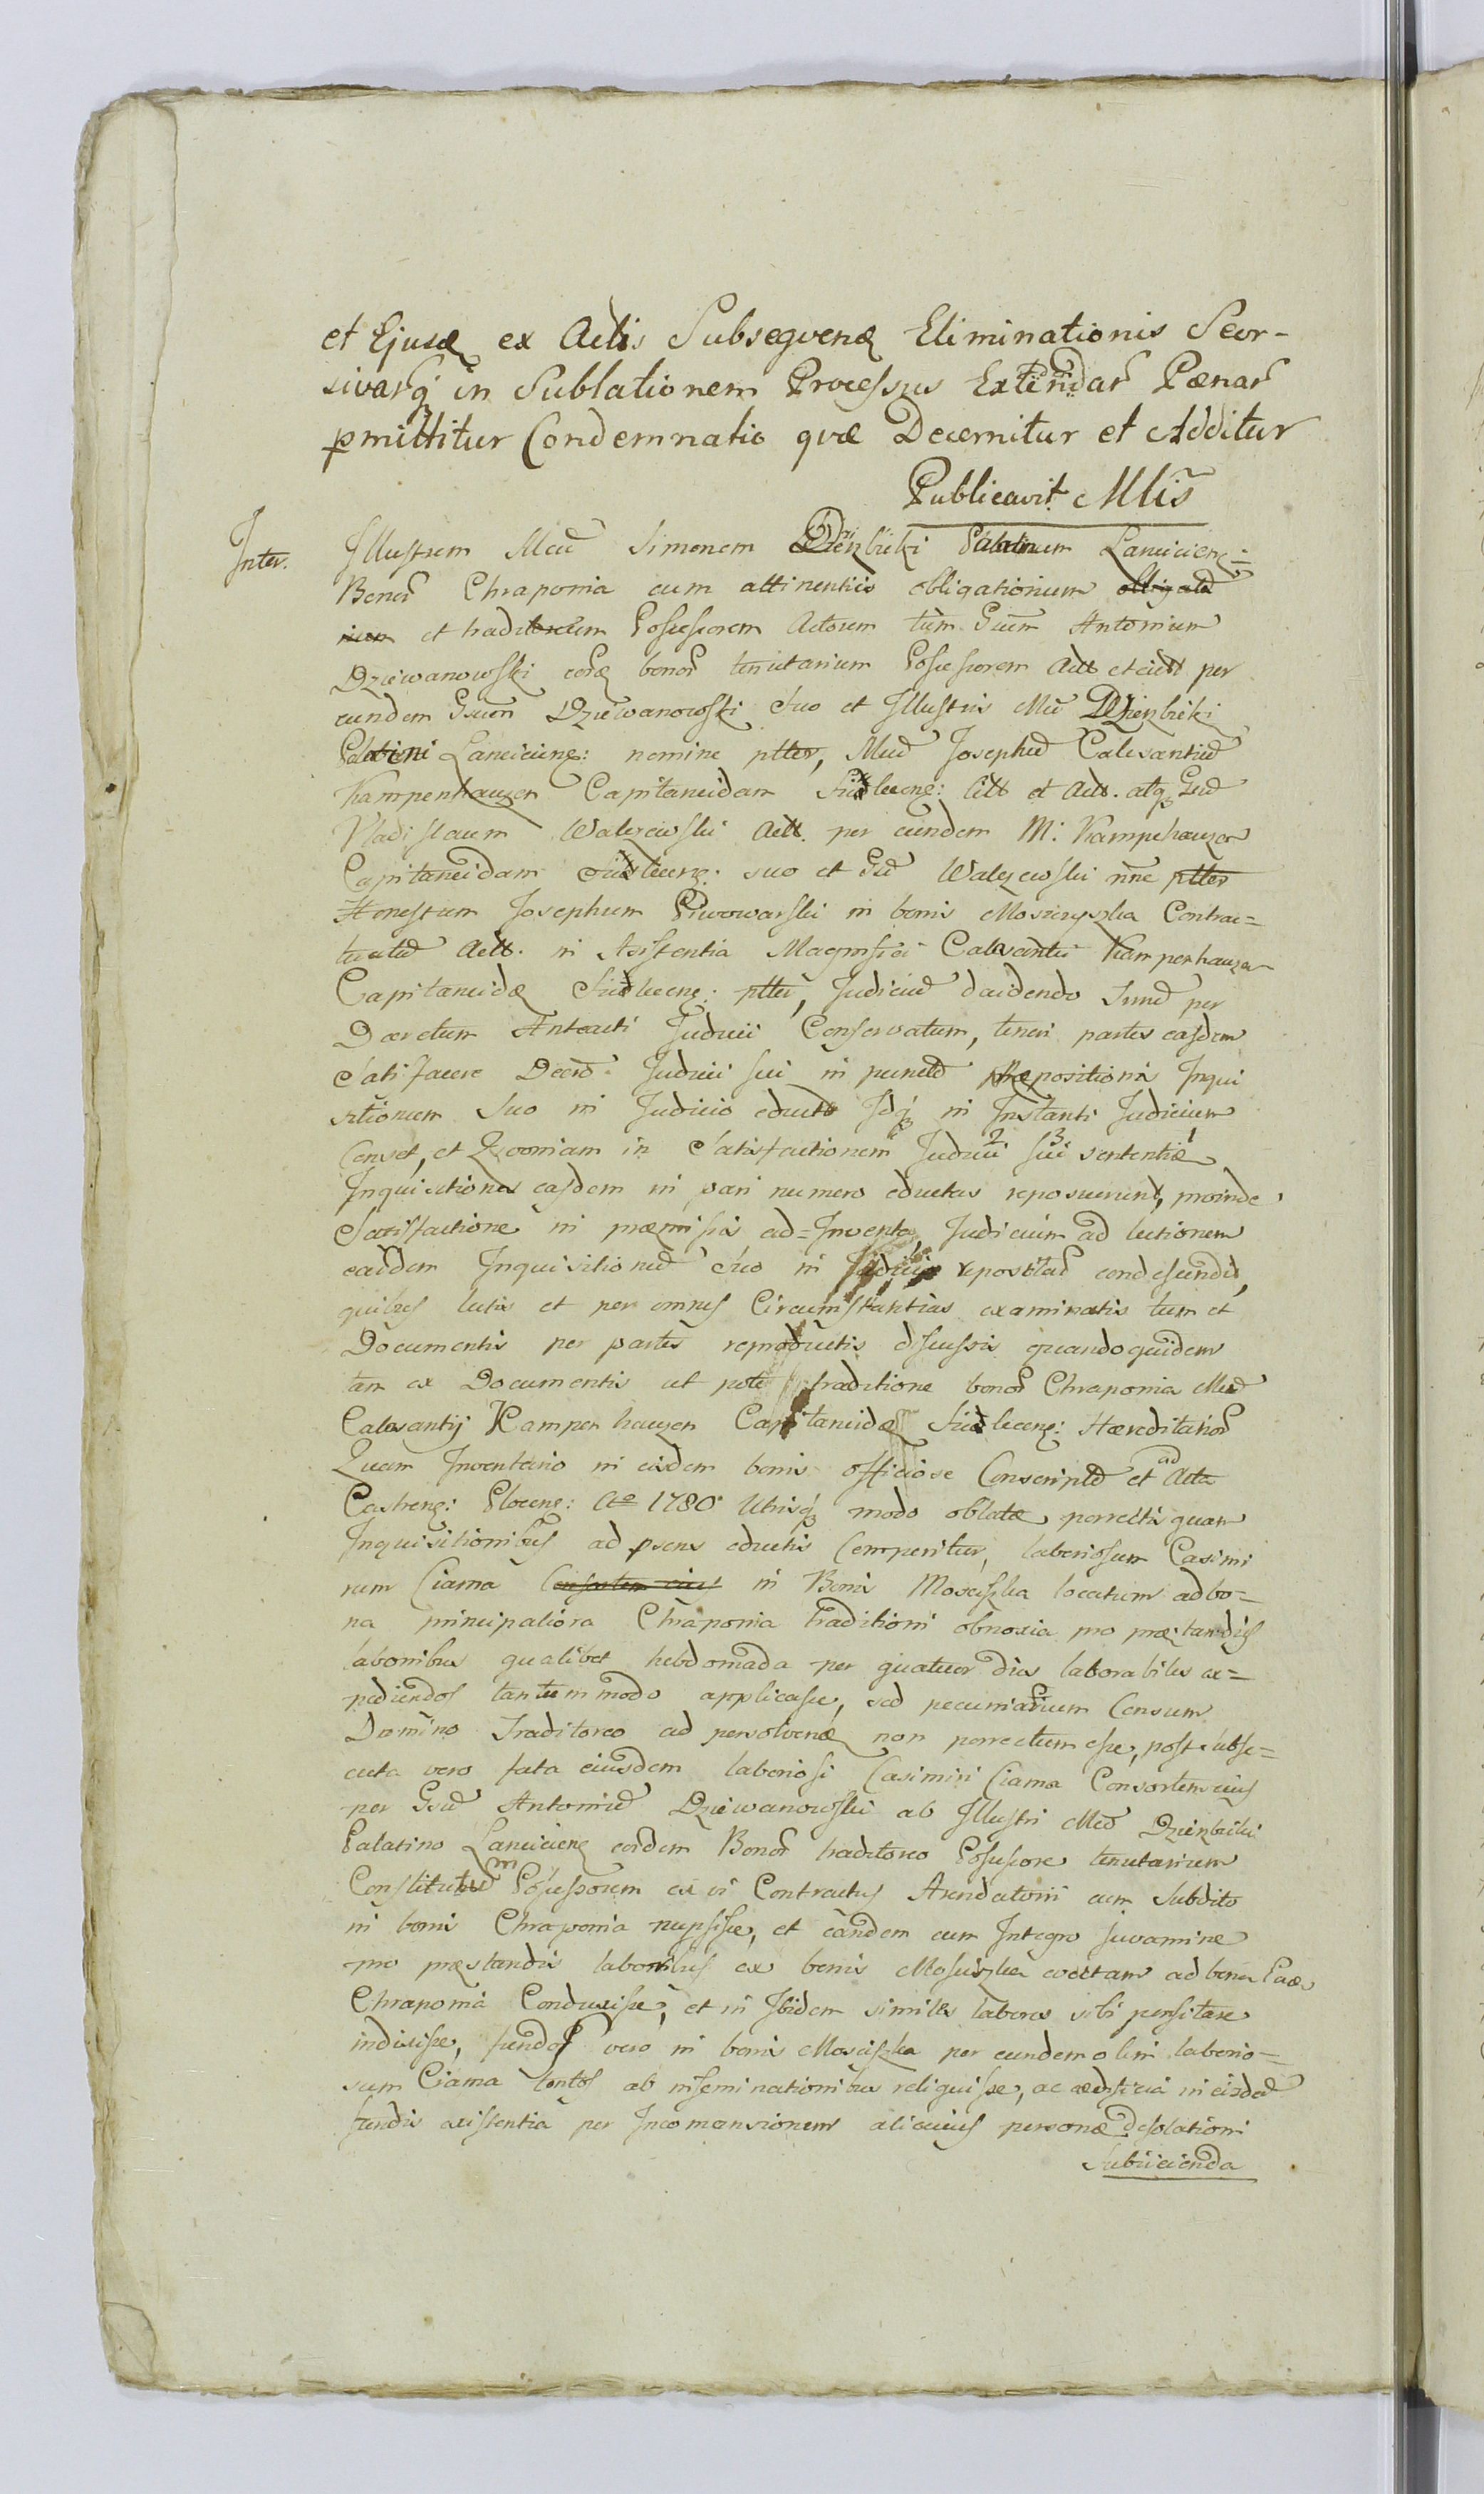 et Ejusdę ex Actis Subseqvenę Eliminationis Seor-
sivarq́ in Sublationem Processus Extendar̃ Pœnar̃
pmittitur Condemnatio qvæ Decernitur et Additur
Publicavit Mlis̃
Inter. Illustrem Mcũ Simonem Dzierzbicki Palatinum Lanciciens=
Bonor̃ Chraponia cum attinentiis obligatorium
et traditorium Possessorem Actorem tùm Gsũm Antonium
Dziewanowski eordę bonor̃ tenutarium Possessorem Act et citt per
eundem Gsum Dziewanowski Suo et Illustris Mci Dzierzbicki
Palatini Lanciciens: nomine ptter, Mcũ Josephũ Calasantiũ
Kampenhauzen Capitaneidam Siedlecens: Citt et Actt. atq́ Gsũ
Vladislaum Walęzewski Actt. per eundem M: Kampehauzen
Capitaneidam Siedlecens: suo et Gsi Walęzewski nñe ptter
Honestum Josephum Piwowarski in bonis Mosciszka Contrac=
tualẽ Actt. in Assistentia Magnifici Calasantii Kampenhauzen
Capitaneidæ Siedlecens: pttũ, Judiciũ decidendo Sumũ per
Decretum Anteacti Judicii Conservatum, teneri partes easdem
Satisfacere Decrõ Judicii sui in punctõ repositionis Inqui
sitionum Suo in Judicio eductar̃ Idq́ in Instanti Judicium
Censet, et Qvoniam in Satisfactionem Judicii 2 sui 3 sententiæ 1
Inquisitiones easdem in pari numero eductas reposuerunt, proinde
Satisfactione in præmissis ad=Inventa, Judicium ad lectionem
earũdem Inquisitionũ Suo in Judicio repositar̃ condescendit,
quibus lectis et per omnes Circumstantias examinatis tum et
Documentis per partes reproductis discussis quandoquidem
tam ex Documentis ut potẽ traditione bonor̃ Chraponia Mci
Calasantij Kampenhauzen Capitaneidæ Siedlecens: Hæreditarior̃
Quam Inventario in eisdem bonis officiose Conscriptõ et ad Acta
Castrens: Plocens: Aõ 1780 Utrisq́ modo oblatæ porrectis quam
Inquisitionibus ad psens eductis Comperitur, laboriosum Casimi
rum Ciama in Bonis Mosciszka locatum ad bo=
na principaliora Chraponia traditioni obnoxia pro præstandis
laboribus qualibet hebdomada per quatuor dies laborabiles ex=
pediendos tantummodo applicasse, sed pecuniarium Censum
Domino Traditoreo ad persolvenę non porrectum esse, post subse=
cuta vero fata eiusdem laboriosi Casimiri Ciama Consortem eius
per Gsũ Antoniũ Dziewanowski ab Illustri Mcõ Dzierzbicki
Palatino Lancicienę eordem Bonor̃ traditoreo Possessore tenutarium
Constitutum Possessorem ex vi Contractus Arendatorii cum Subdito
in bonis Chraponia nupsisse, et eandem cum Integro Juvamine
pro præstandis laboribus ex bonis Mosciszka evectam ad bona
Chraponia Conduxisse, et in Ibidem similes labores sibi pensitare
indixisse, fundos vero in bonis Mosciszka per eundem olim laborio=
sum Ciama tentos ab inseminationibus reliquisse, ac ædificia in eisdẽ
fundis existentia per Incomansionem alicuius personæ desolationi
Subiicienda